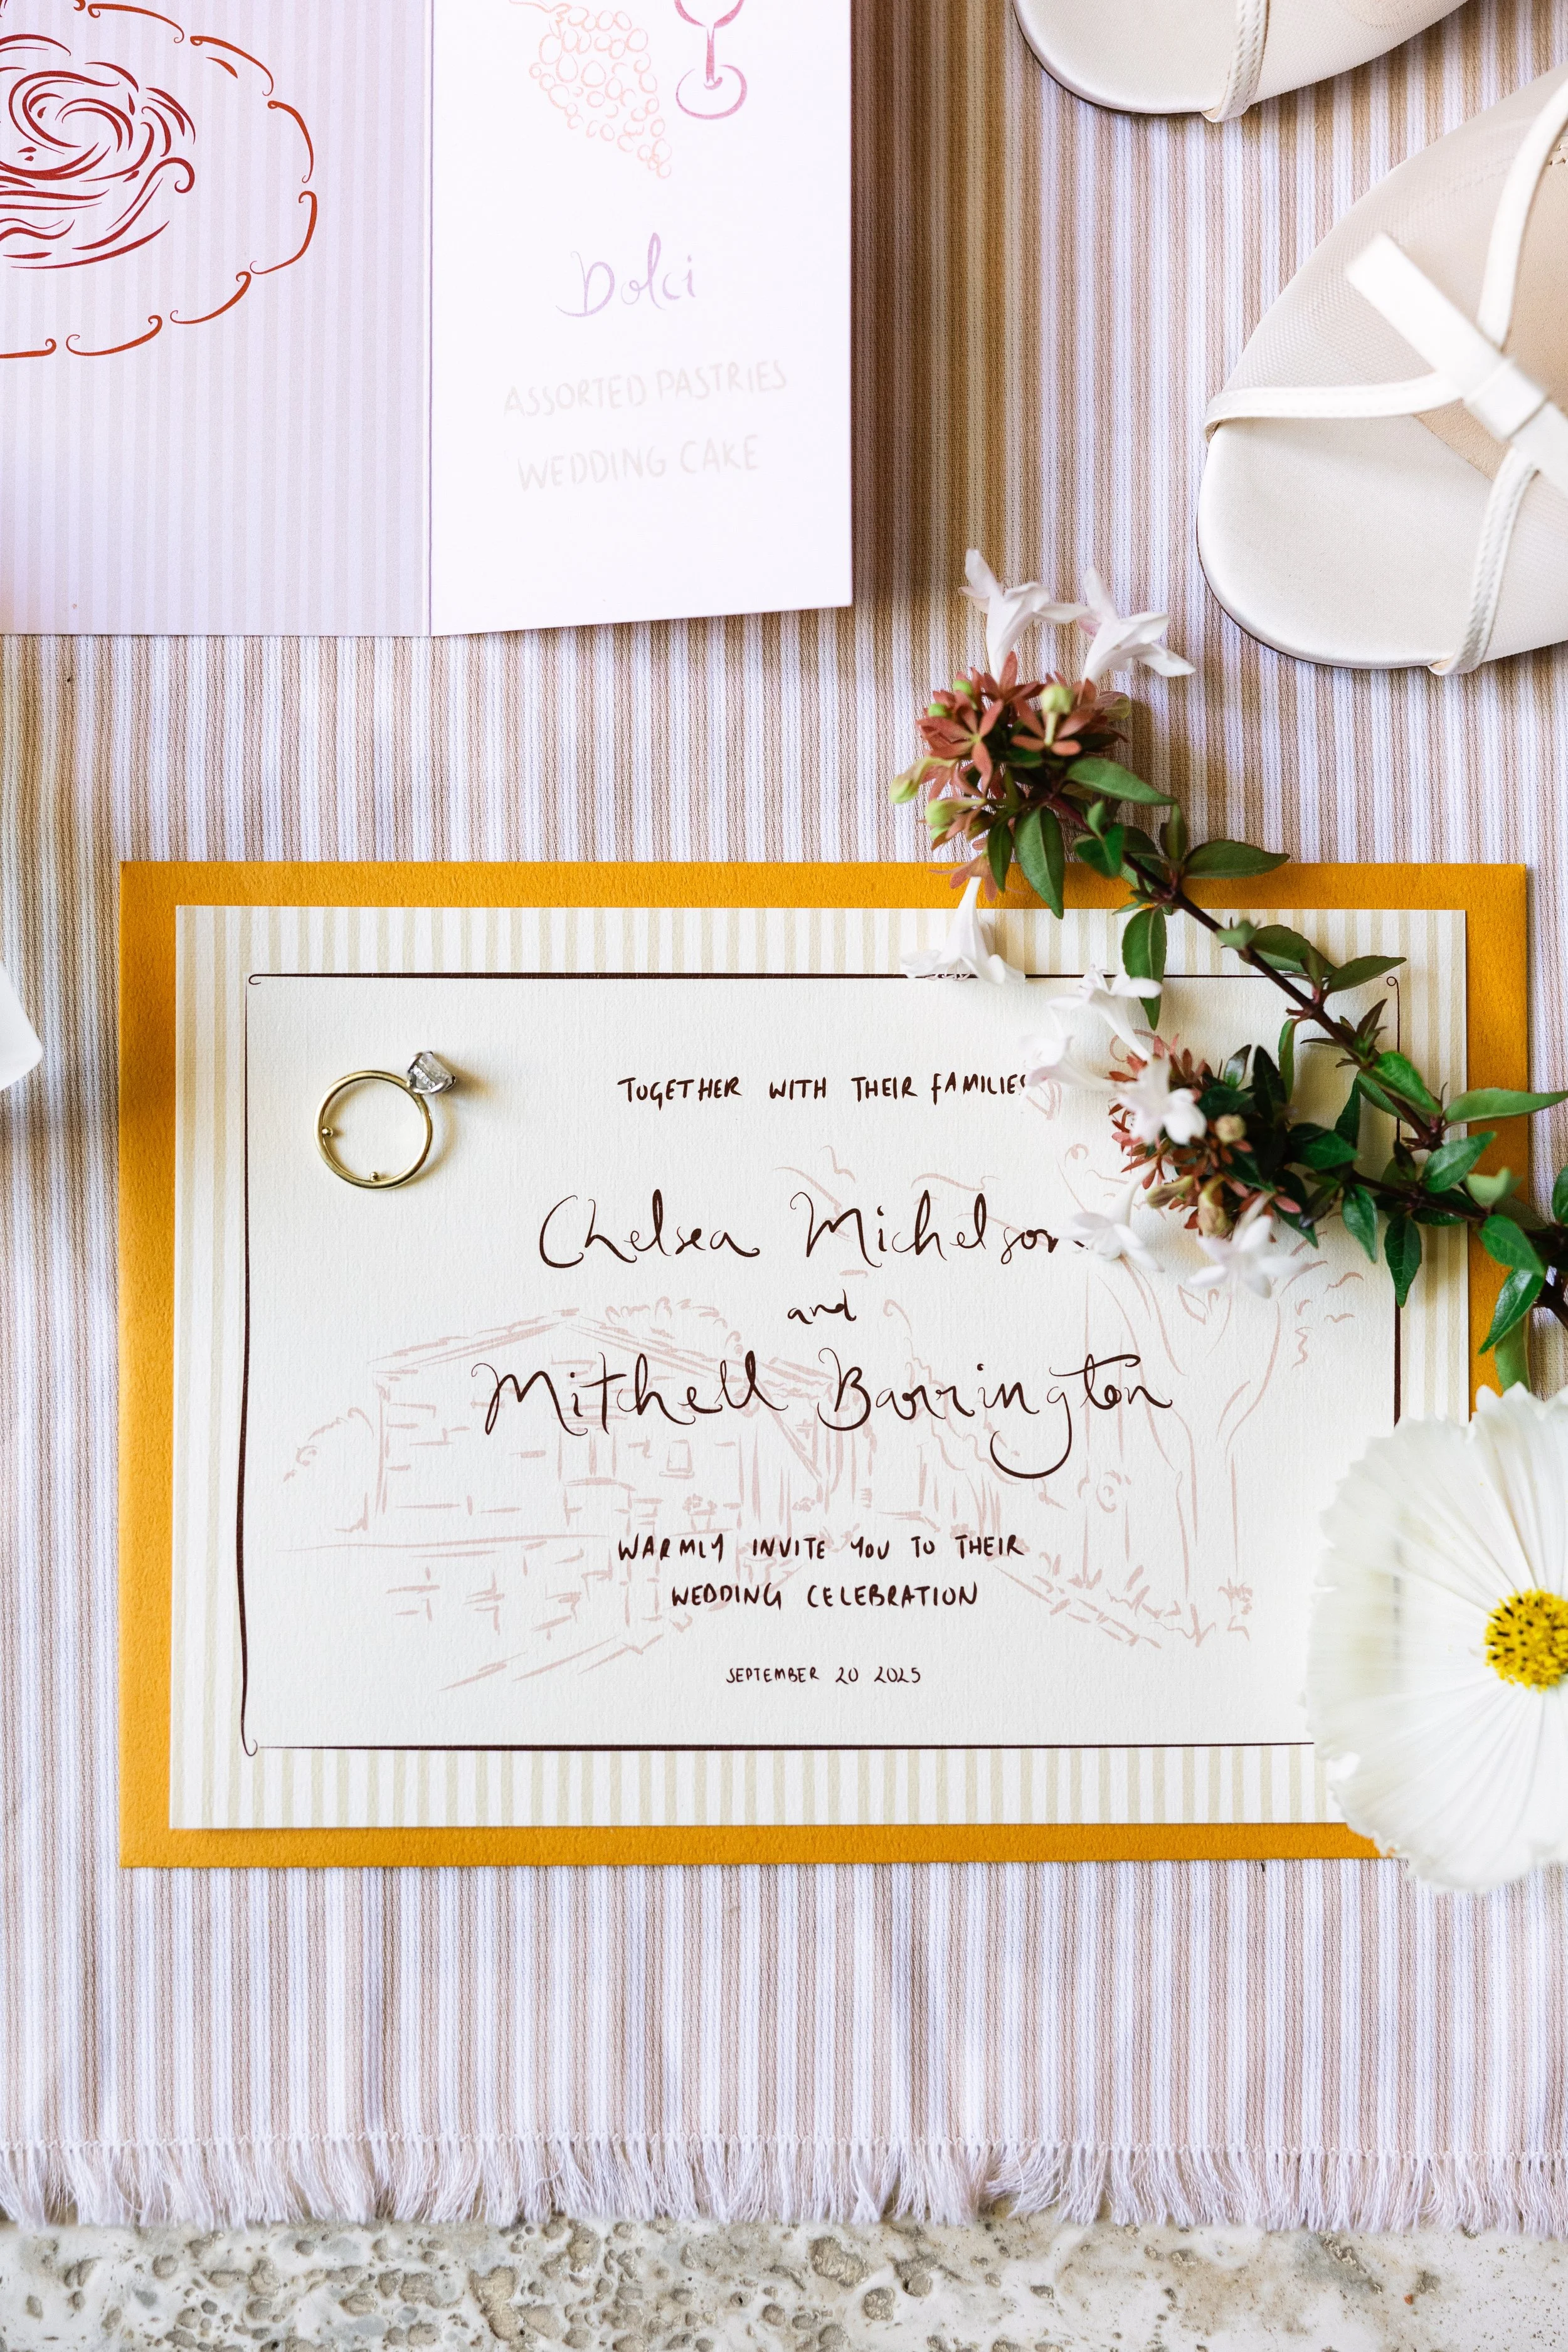 Dolci
ASSORTED PASTRIES
WEDDING CAKE
TOGETHER WITH THEIR FAMILIES
Chelsea Michelson
and
Mitchell Barrington
WARMLY INVITE YOU TO THEIR
WEDDING CELEBRATION
SEPTEMBER 20 2025